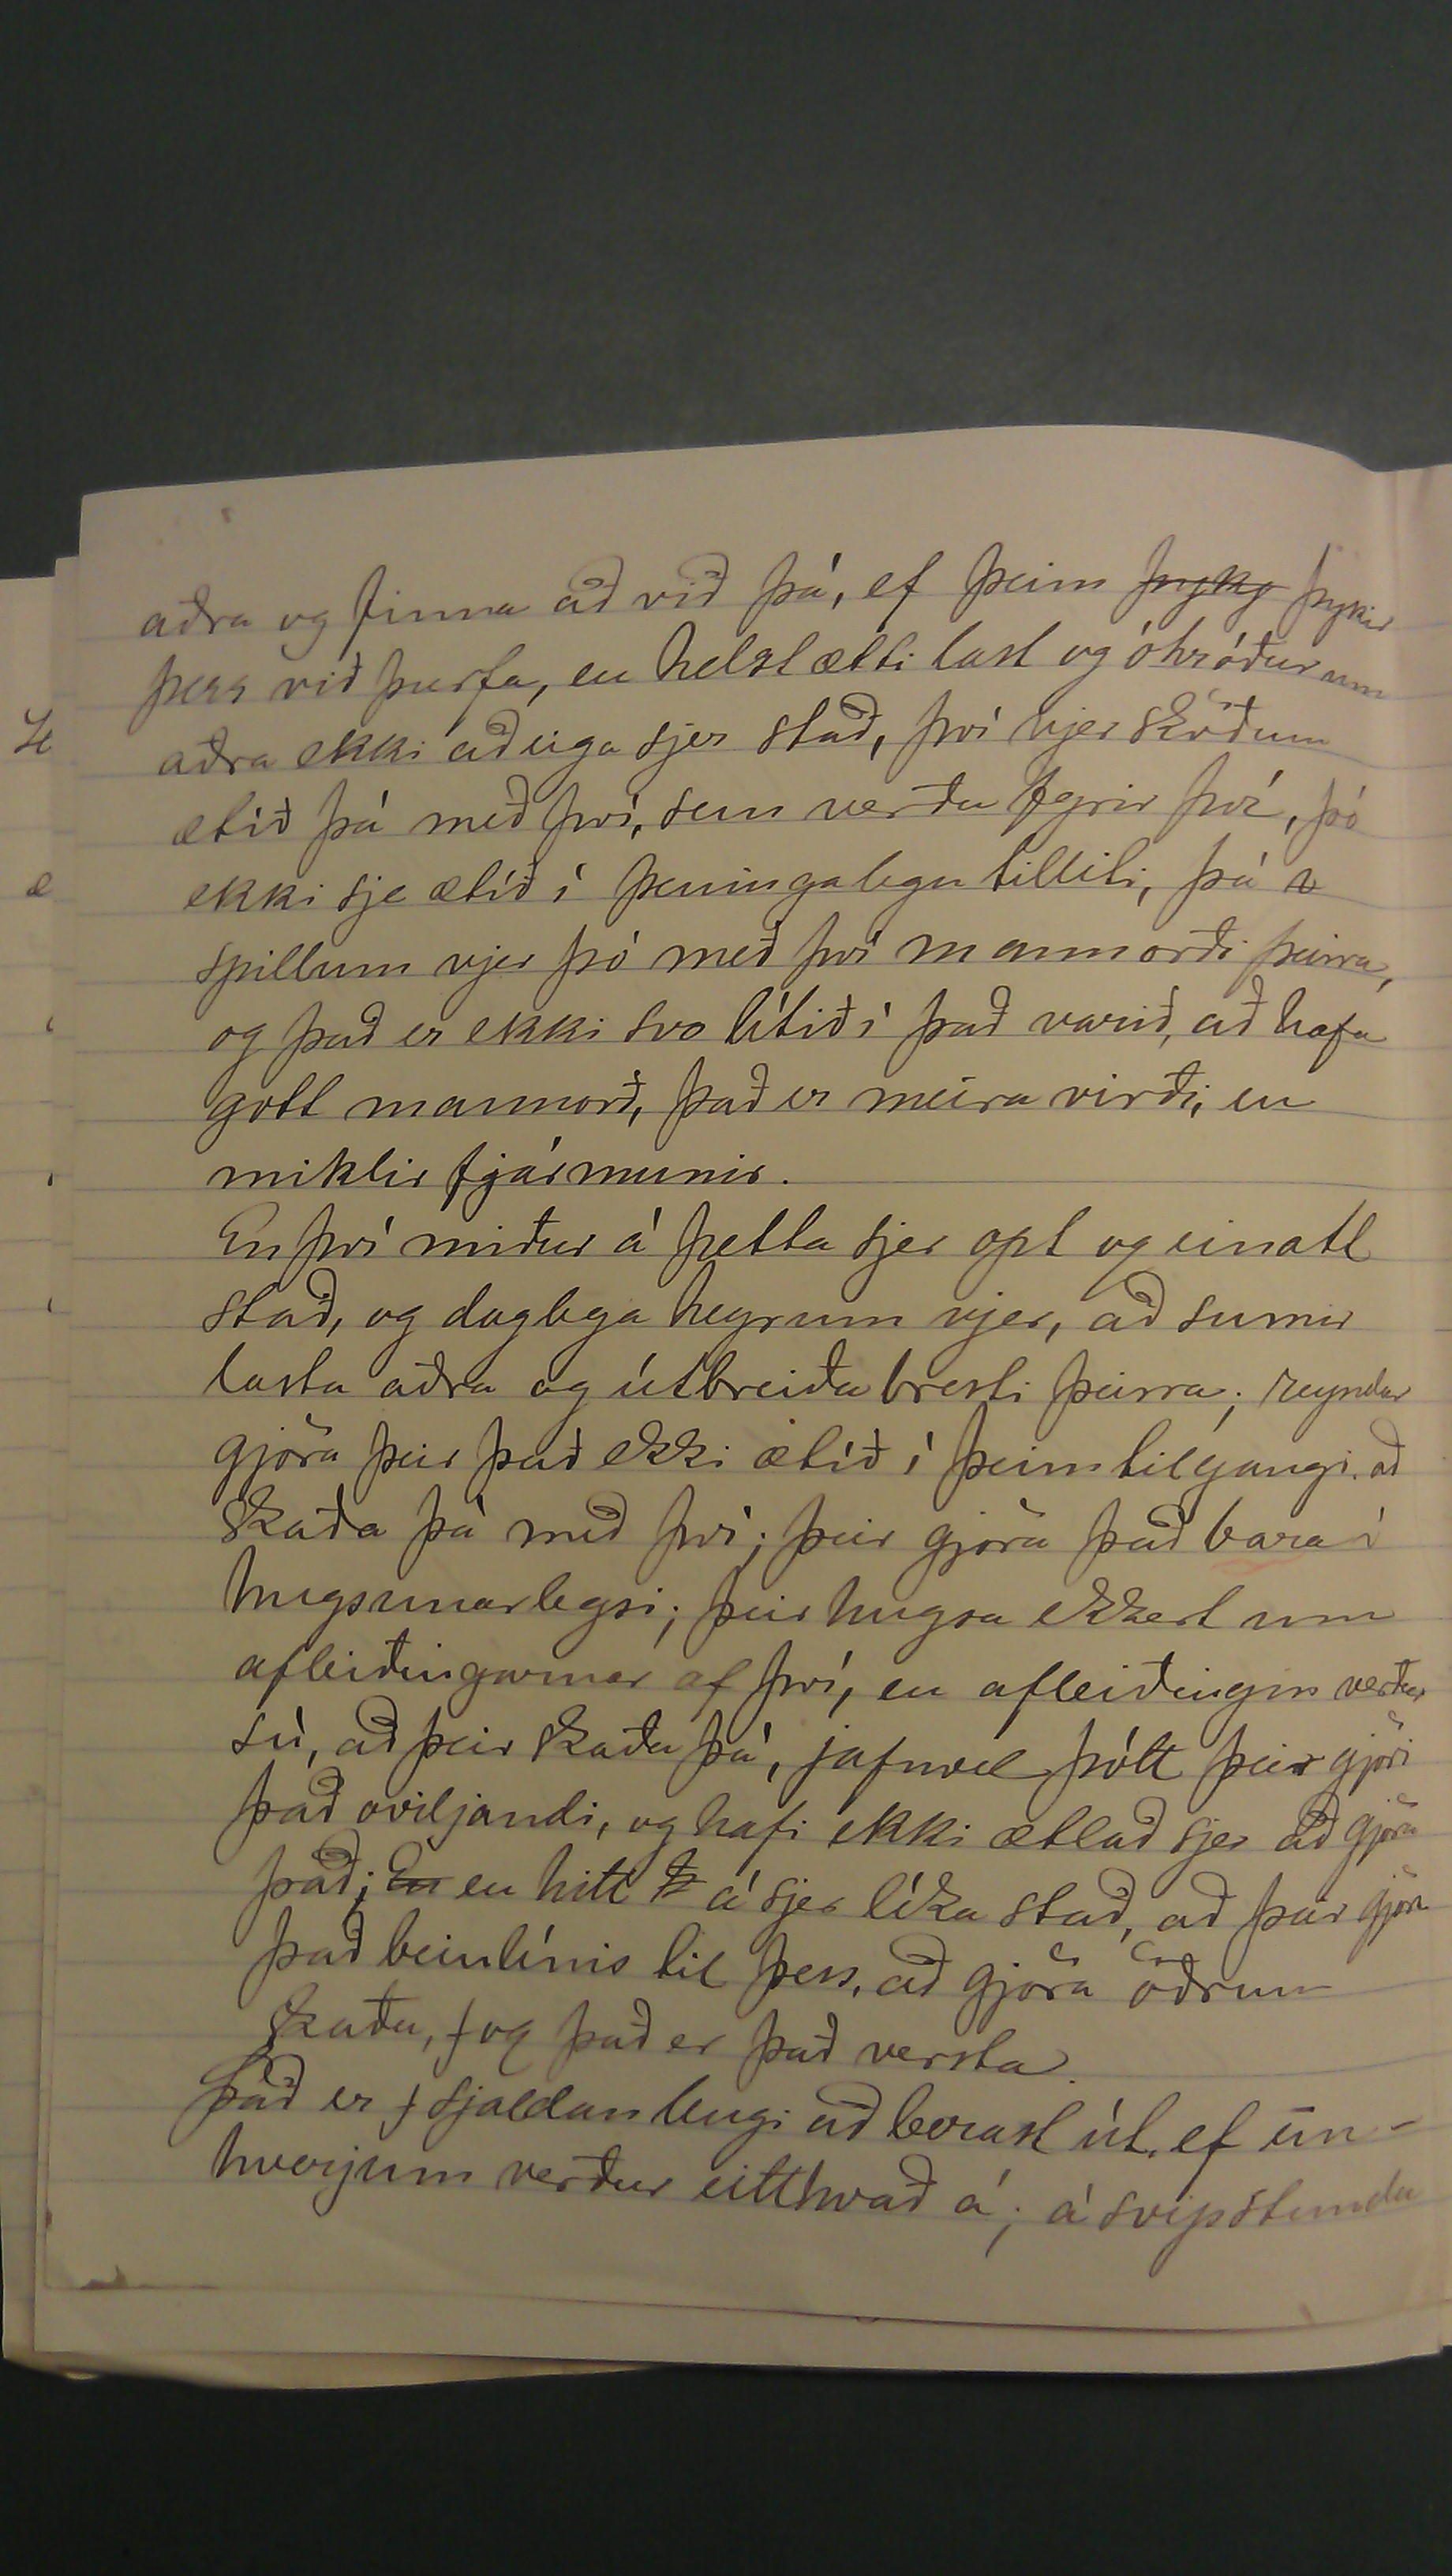 aðra og finna að við þá, ef þeim þykg þykir
þess við þurfa, en helst ætti last og óhróður um
aðra ekki að eiga sjer stað, því vjer sköðum
ætíð þá með því, sem verða fyrir því, þó
ekki sje ætíð í peningalegu tilliti, þá v
spillum vjer þó með því mannorði þeirra,
og það er ekki svo lítið í það varið, að hafa
gott mannorð, það er meira virði, en
miklir fjármunir.
En því miður á þetta sjer opt og einatt
stað, og daglega heyrum vjer, að sumir
lasta aðra og útbreiða bresti þeirra; reyndar
gjöra þeir það ekki ætíð í þeim tilgangi, að
skaða þá með því; þeir gjöra það bara í
hugsunarleysi; þeir hugsa ekkert um
afleiðingarnar af því, en afleiðingin verður
sú, að þeir skaða þá, jafnvel þótt þeir gjöri
það óviljandi, og hafi ekki ætlað sjer að gjöra
það; En en hitt á sjer líka stað, að þeir gjöra
það beinlínis til þess, að gjöra öðrum
skaða, og það er það versta.
Það er sjaldan lengi að berast út, ef ein-
hverjum verður eitthvað á; á svipstundu